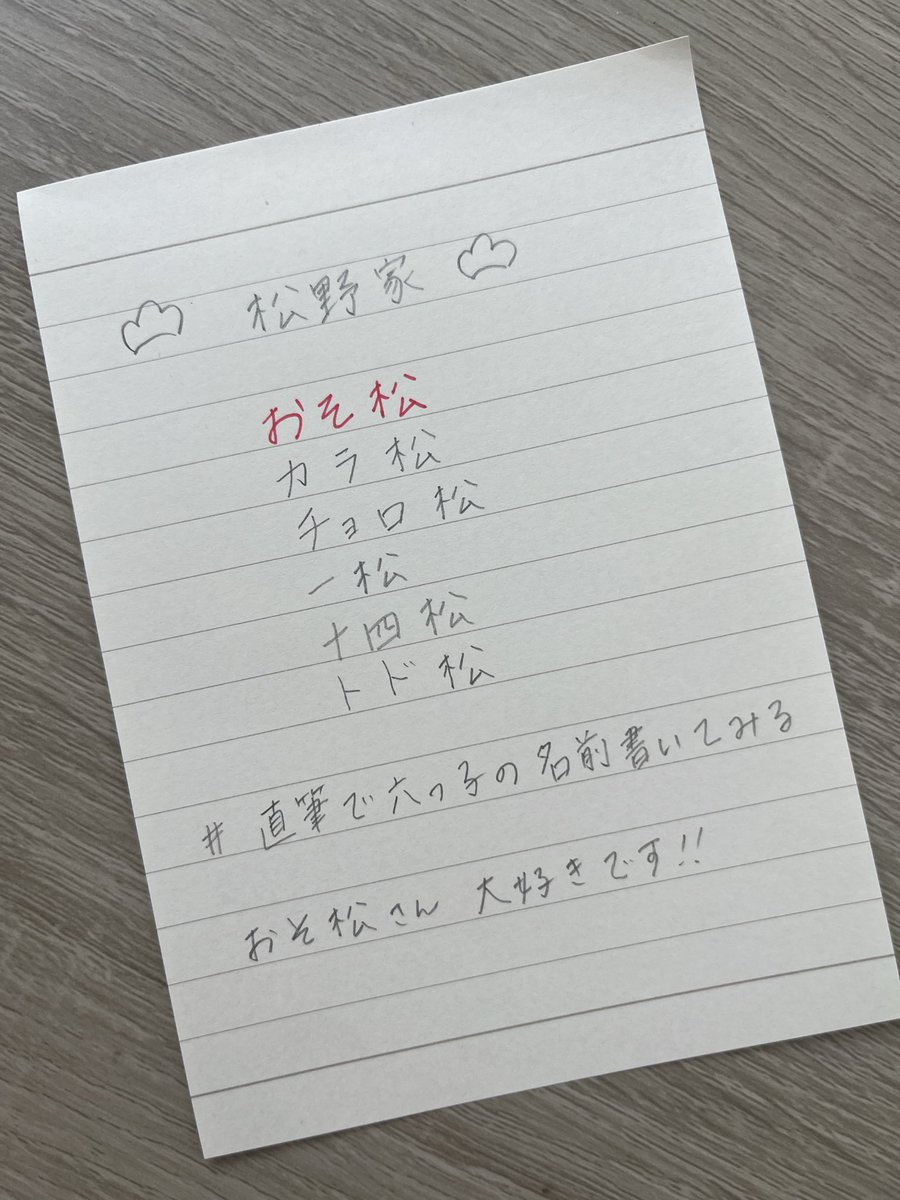 松野家
おそ松
カラ松
チョロ松
一松
十四松
トド松
# 直筆で六つ子の名前書いてみる
おそ松さん 大好きです!!